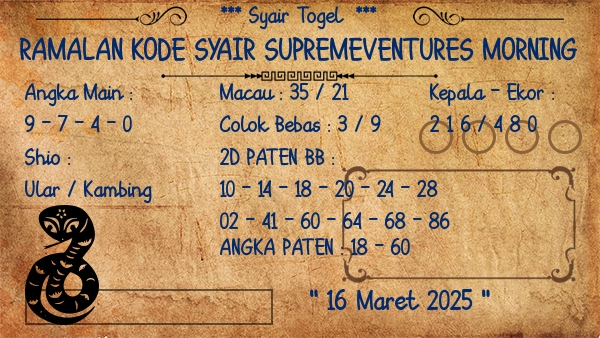 *** Syair Togel ***
RAMALAN KODE SYAIR SUPREMEVENTURES MORNING
Angka Main :
9 - 7 - 4 - 0
Shio :
Ular / Kambing
Macau : 35 / 21
Colok Bebas : 3 / 9
2D PATEN BB :
10 - 14 - 18 - 20 - 24 - 28
02 - 41 - 60 - 64 - 68 - 86
ANGKA PATEN : 18 - 60
Kepala - Ekor :
2 1 6 / 4 8 0
" 16 Maret 2025 "